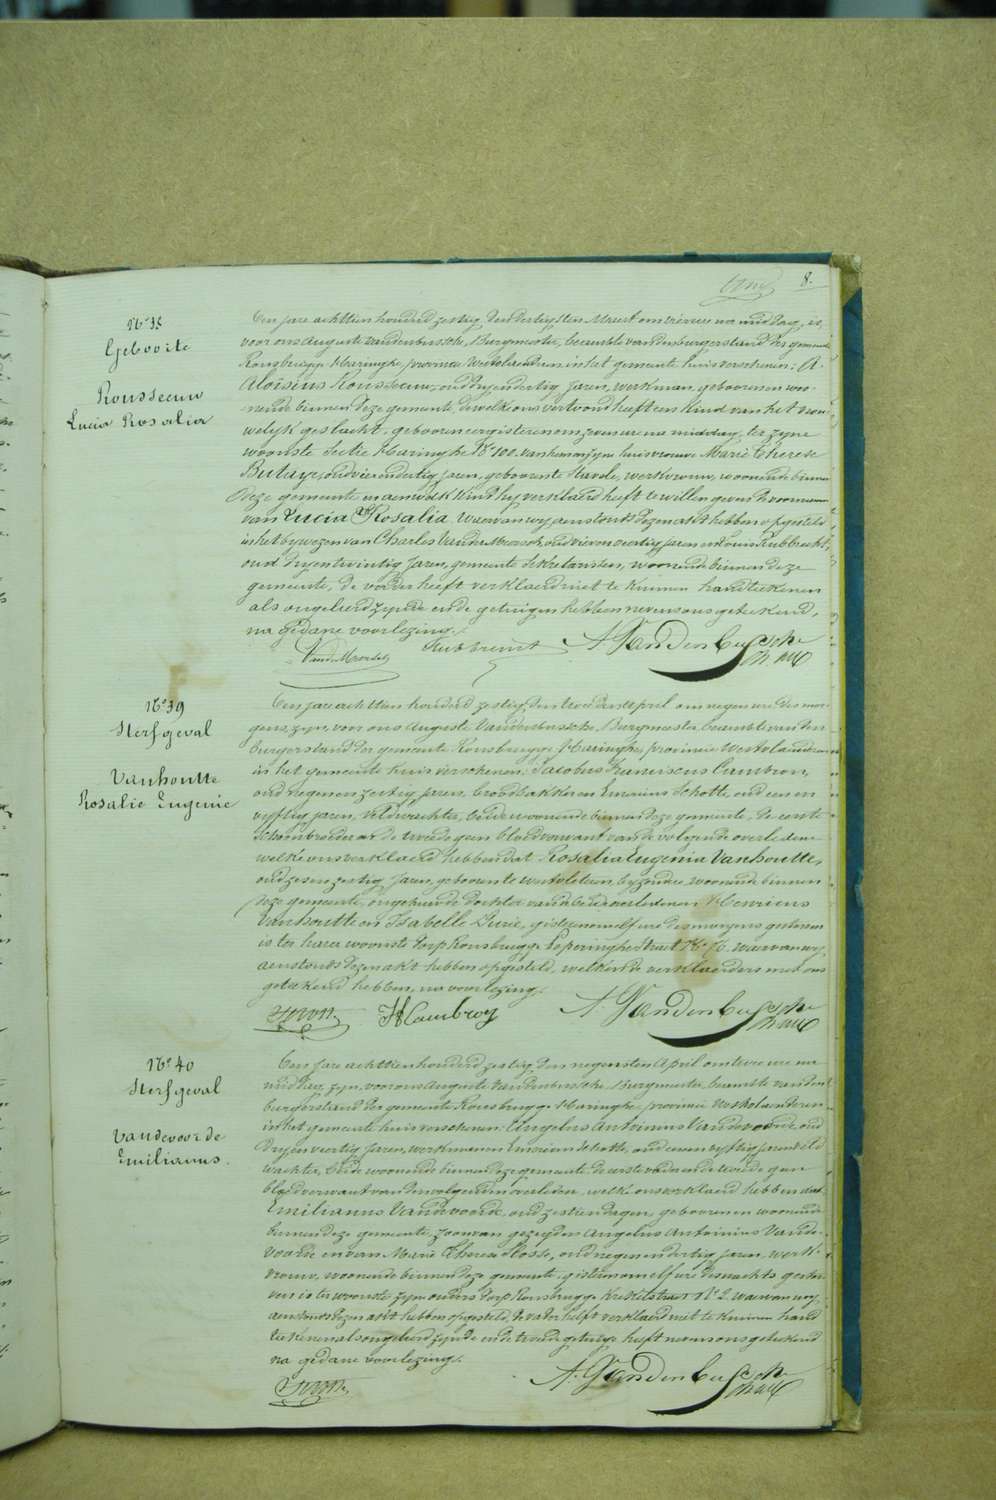 8.
N° 38
Geboorte
Rousseeuw
Lucia Rosalia
Een jare achttien honderd zestig den dertigsten Meert om vier ure na middag, is
voor ons Auguste Vandenbussche, Burgmeester, beamble van den burgerstand der gemeente
Rousbrugge-Haringhe, provincie Westvlaanderen in het gemeente huis verschenen: A.
Aloisius Rousseeuw, oud dryendertig jaren, werkman, geboren en woo-
nende binnen deze gemeente, dewelke ons vertoond heeft een kind van het vrou-
welyk geslacht, geboren eergisteren om zeven ure na middag, ter zyne
woonste Sectie Haringhe N° 100. van hem en zyne huisvrouwe Marie Therese
Butaye, oud vierendertig jaren, geboren te Stavele, werkvrouw, woonende binnen
deze gemeente en aen welk kind hy verklaerd heeft te willen geven de voornamen
van Lucia Rosalia. Waervan wy aenstonds dezen akt hebben opgesteld
in het bywezen van Charles Vander Meersch, oud vierenveertig jaren en Louis Rubbrecht,
oud dryentwintig jaren, gemeente sekretarissen, woonende binnen deze
gemeente, de vader heeft verklaerd niet te kunnen handteekenen
als ongeleerd zynde en de getuigen hebben nevens ons geteekend,
na gedane voorlezing.
Rubbrecht A. Vandenbussche
N° 39
Sterfgeval
Vanhoutte
Rosalie Eugenie
Een jare achttien honderd zestig, den tweeden April om negen ure des mor-
gens, zyn, voor ons Auguste Vandenbussche, Burgmeester beambte van den
burgerstand der gemeente Rousbrugge-Haringhe, provincie Westvlaanderen
in het gemeente huis verschenen: Jacobus Franciscus Cambron,
oud negenenzestig jaren, broodbakker en Emerinus Schotte, oud een en
vyftig jaren, veldwachter, beide woonende binnen deze gemeente, de eerste
schoonbroeder en de tweede geen bloedverwant van de volgende overledene
welke ons verklaerd hebben dat Rosalia Eugenia Vanhoutte,
oud zesenzestig jaren, geboren te Westvleteren, byzondere, woonende binnen
deze gemeente, ongehuwde dochter van de beide overledenen Henricus
Vanhoutte en Isabelle Durie, gisteren om elf ure des morgens gestorven
is ter harer woonste dorp Rousbrugge Poperinghe Straet N° 76. waervan wy
aenstonds dezen akt hebben opgesteld, welken de verklaerders met ons
geteekend hebben, na voorlezing.
A. Vandenbussche
N° 40
Sterfgeval
Vandevoorde
Emilianus.
Een jare achttien honderd zestig, den negensten April om twee ure na
middag, zyn, voor ons Auguste Vandenbussche, Burgmeester, beambte van den
burgerstand der gemeente Rousbrugge-Haringhe, provincie Westvlaanderen
in het gemeente huis verschenen: Angelus Antoinius Vandevoorde, oud
dryenveertig jaren, werkman en Emerinus Schotte, oud eenenvyftig jaren veld
wachter, beide woonende binnen deze gemeente de eerste vader en de tweede geen
bloedverwant van den volgenden overleden, welke ons verklaerd hebben dat
Emilianus Vandevoorde, oud zestien dagen, geboren en woonende
binnen deze gemeente, zoon van gezegden Angelus Antoinius Vande-
voorde en van Marie Therese Cosse, oud negenendertig jaren, werk-
vrouw, woonende binnen deze gemeente, gisteren om elf ure des nachts gestor-
ven is ter woonste zyner ouders dorp Rousbrugge N° 2. waervan wy
aenstonds dezen akt hebben opgesteld, de vader heeft verklaerd niet te kunnen hand
teekenen als ongeleerd zynde en de tweede getuige heeft nevens ons geteekend
na gedane voorlezing.
A. Vandenbussche